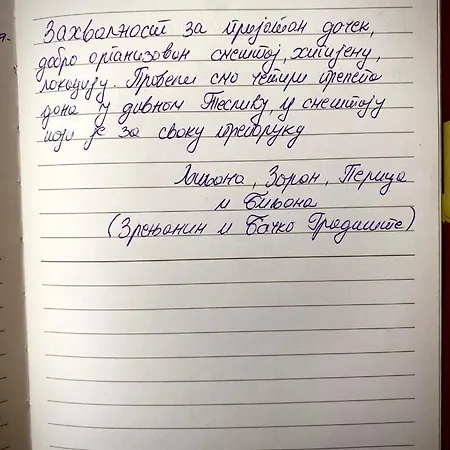 Захвалност за пријатан дочек,
добро организован смештај, хигијену,
локацију. Провели смо четири прелепа
дана у дивном Теслићу, у смештају
који је за сваку препоруку
Љиљана, Зоран, Перица
и Биљана
(Зрењанин и Бачко Градиште)